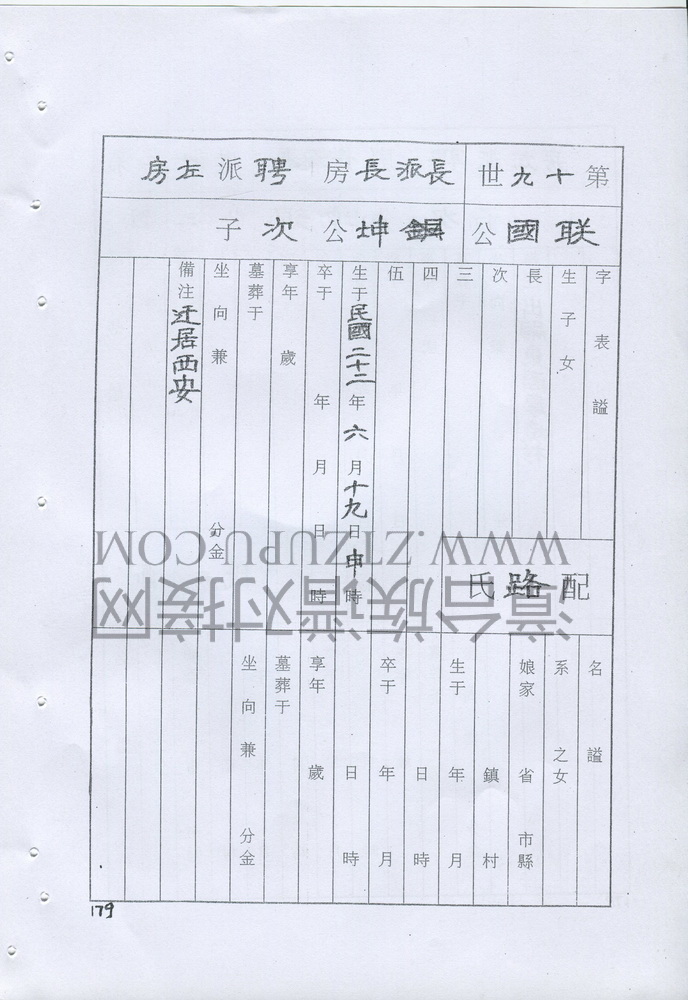 第十九世
長派長房 聘派左房
联國公
坤公次子
字表謚
生子女
長
次
三
四
伍
生于民國二十二年六月十九日申時
卒于 年 月 日 時
享年 歲
墓葬于
坐向兼 分金
備注 迁居西安
配路氏
名謚
系 之女
娘家 省 市縣
鎮 村
生于 年 月
日 時
卒于 年 月
日 時
享年 歲
墓葬于
坐向兼 分金
179
WWW.ZTZUPU.COM
漳台族谱对接网